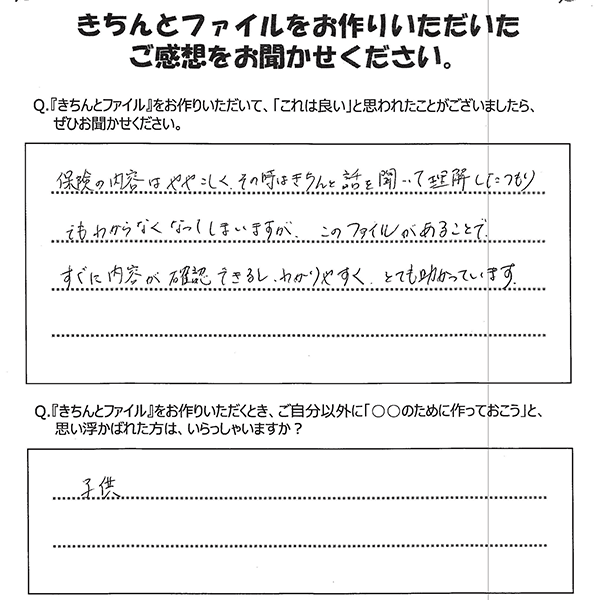 きちんとファイルをお作りいただいた
ご感想をお聞かせください。
Q.『きちんとファイル』をお作りいただいて、「これは良い」と思われたことがございましたら、
ぜひお聞かせください。
保険の内容はややこしく、その時はきちんと話を聞いて理解したつもり
でもわからなくなってしまいますが、このファイルがあることで、
すぐに内容が確認できるし、わかりやすく、とても助かっています。
Q.『きちんとファイル』をお作りいただくとき、ご自分以外に「○○のために作っておこう」と、
思い浮かばれた方は、いらっしゃいますか？
子供